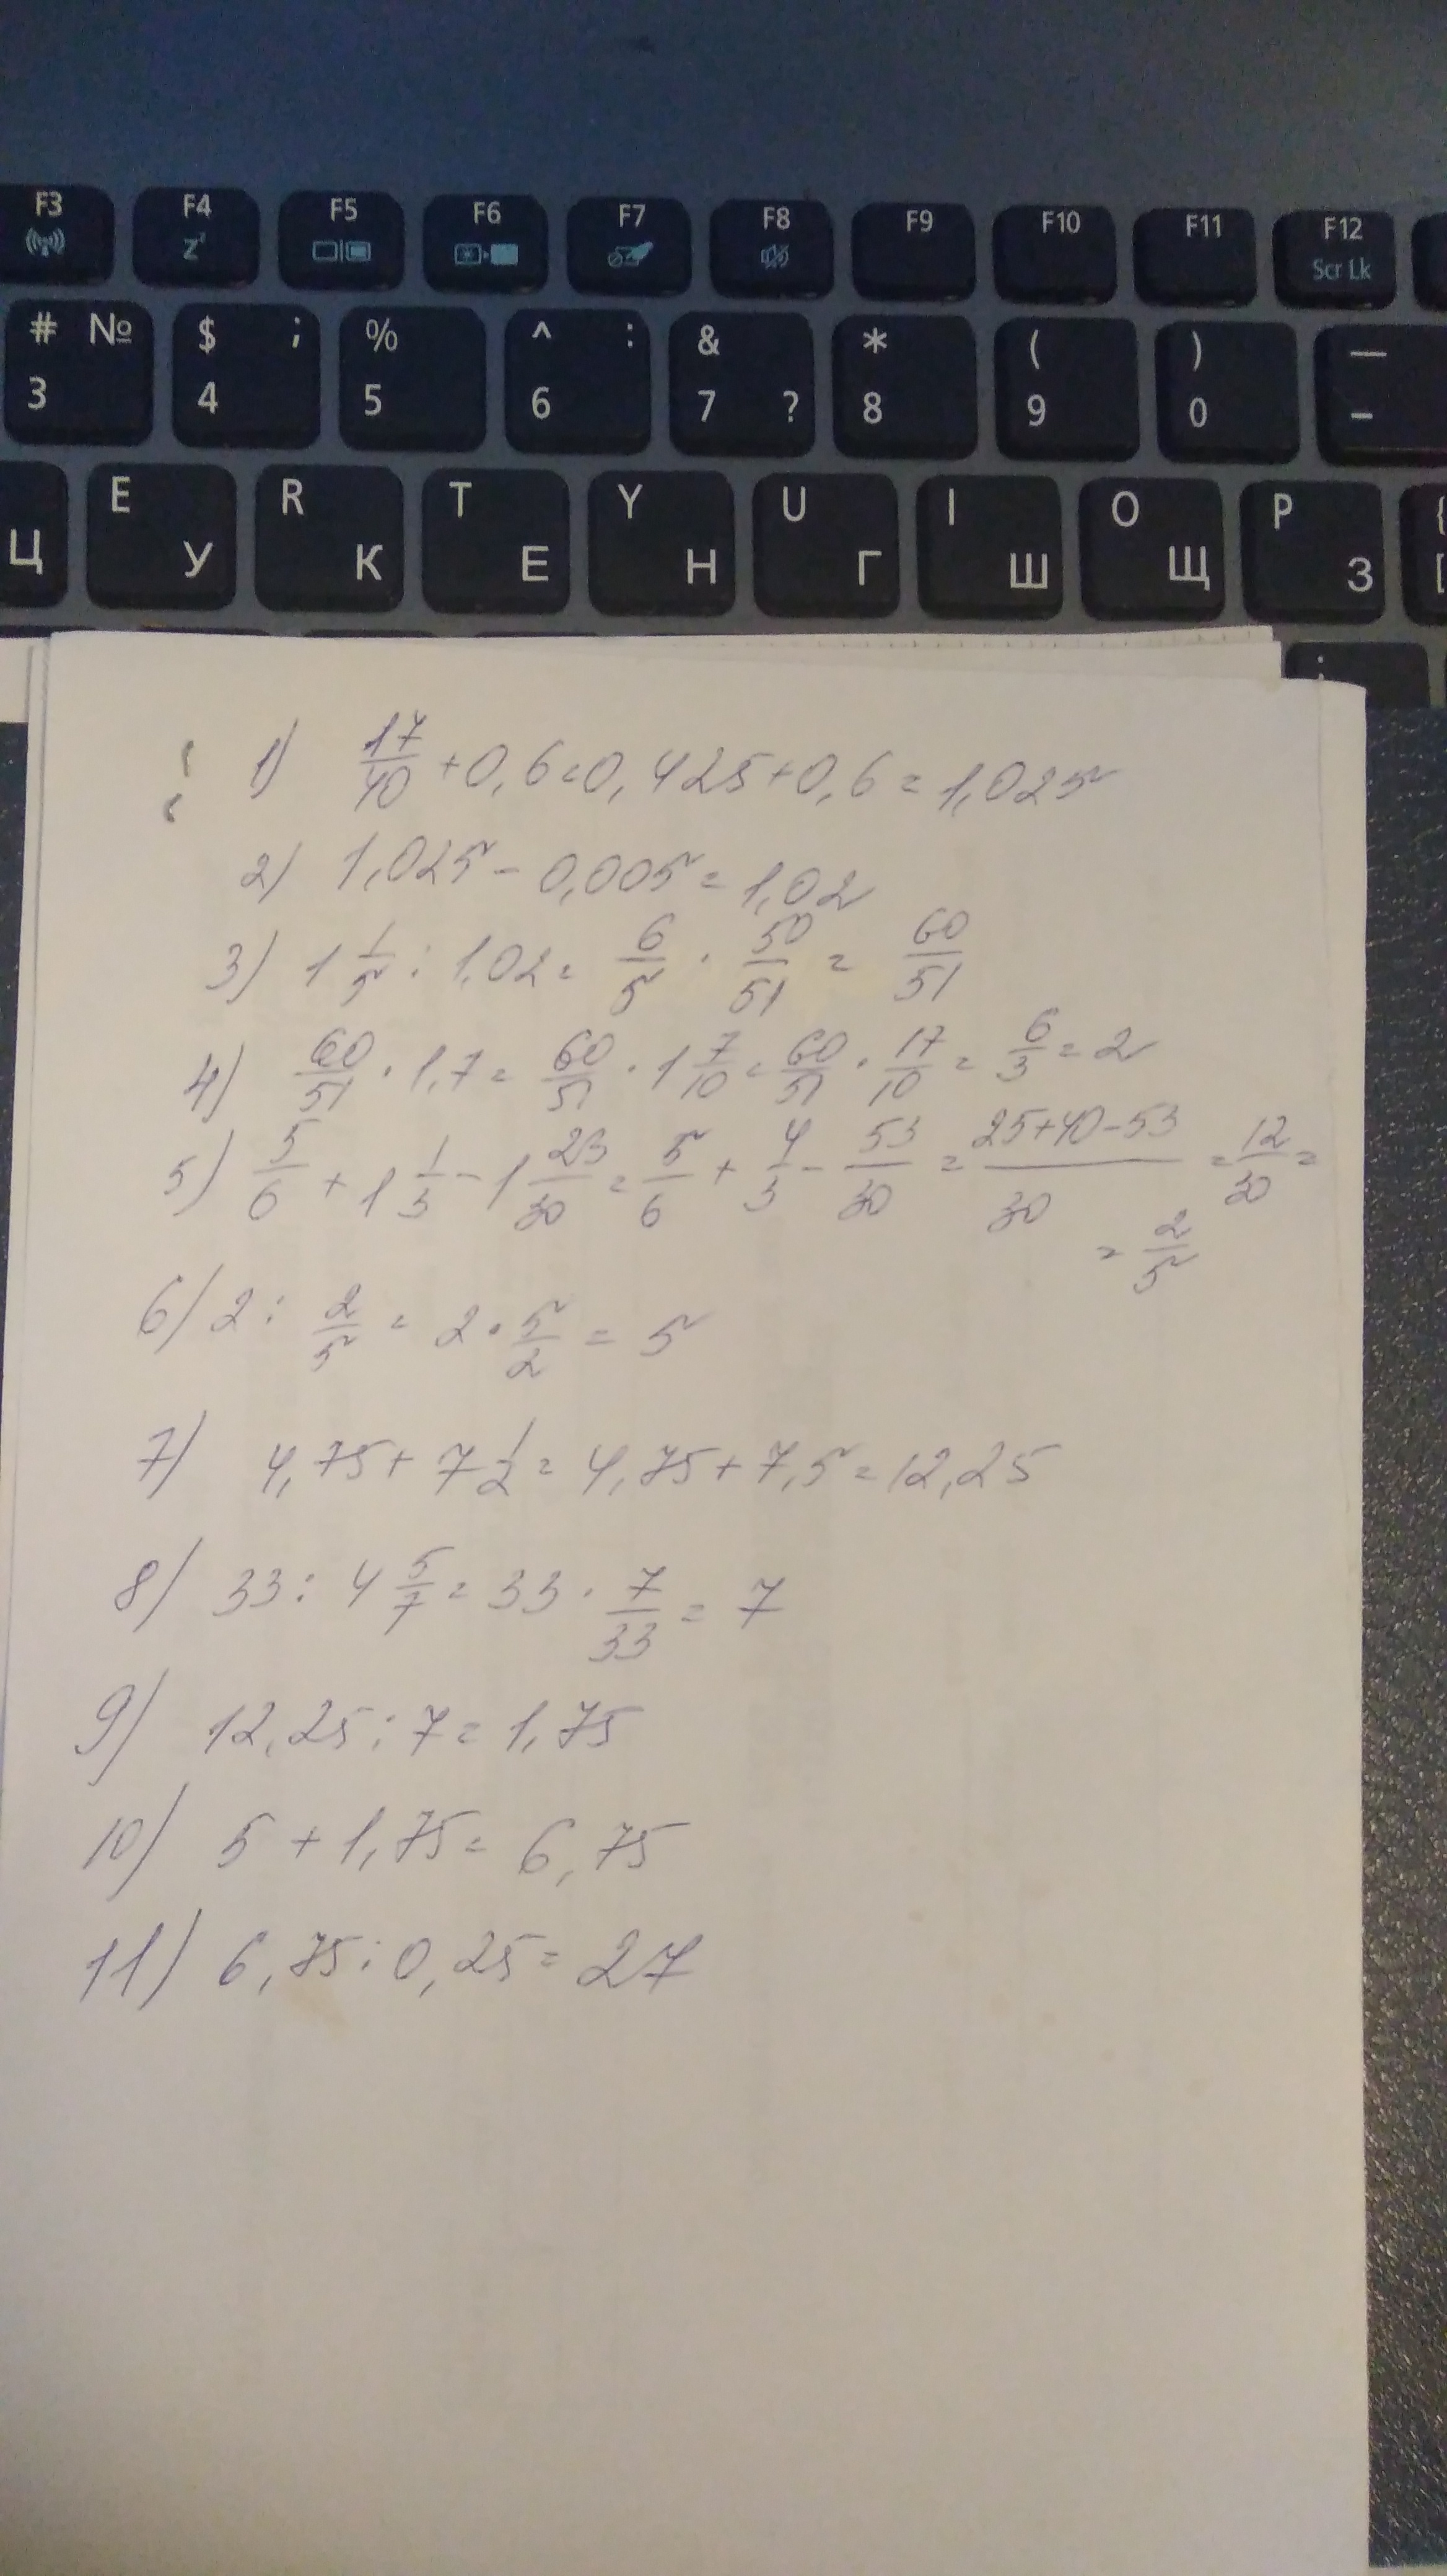 F3 F4 F5 F6 F7 F8 F9 F10 F11 F12
Z Scr Lk
# № $ ; % ^ : & * ( ) —
3 4 5 6 7 ? 8 9 0 –
E R T Y U I O P {
Ц У К Е Н Г Ш Щ З [
1) 17/40 + 0,6 = 0,425 + 0,6 = 1,025
2) 1,025 - 0,005 = 1,02
3) 1 1/5 : 1,02 = 6/5 · 50/51 = 60/51
4) 60/51 · 1,7 = 60/51 · 1 7/10 = 60/51 · 17/10 = 6/3 = 2
5) 5/6 + 1 1/3 - 1 23/30 = 5/6 + 4/3 - 53/30 = 25+40-53/30 = 12/30 =
= 2/5
6) 2 : 2/5 = 2 · 5/2 = 5
7) 4,75 + 7 1/2 = 4,75 + 7,5 = 12,25
8) 33 : 4 5/7 = 33 · 7/33 = 7
9) 12,25 : 7 = 1,75
10) 5 + 1,75 = 6,75
11) 6,75 : 0,25 = 27